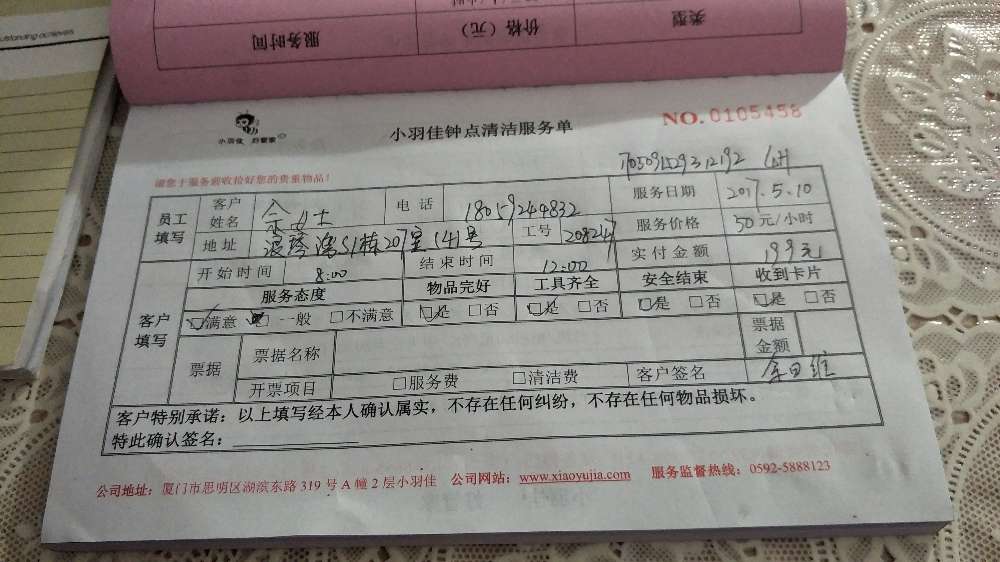 outstanding achieves
类型 价格（元） 服务时间
小羽佳 好管家
小羽佳钟点清洁服务单
NO.0105458
请您于服务前收拾好您的贵重物品！
员工填写 客户姓名 余女士 电话 18059244832 服务日期 2017.5.10
地址 S1栋207室141号 工号 208247 服务价格 50元/小时
开始时间 8:00 结束时间 12:00 实付金额 199元
客户填写 服务态度 物品完好 工具齐全 安全结束 收到卡片
☑满意 一般 □不满意 ☑是 □否 ☑是 □否 ☑是 □否 ☑是 □否
票据 票据名称 票据金额
开票项目 □服务费 □清洁费 客户签名
客户特别承诺：以上填写经本人确认属实，不存在任何纠纷，不存在任何物品损坏。
特此确认签名：
公司地址：厦门市思明区湖滨东路 319 号 A 幢 2 层小羽佳 公司网站：www.xiaoyujia.com 服务监督热线：0592-5888123